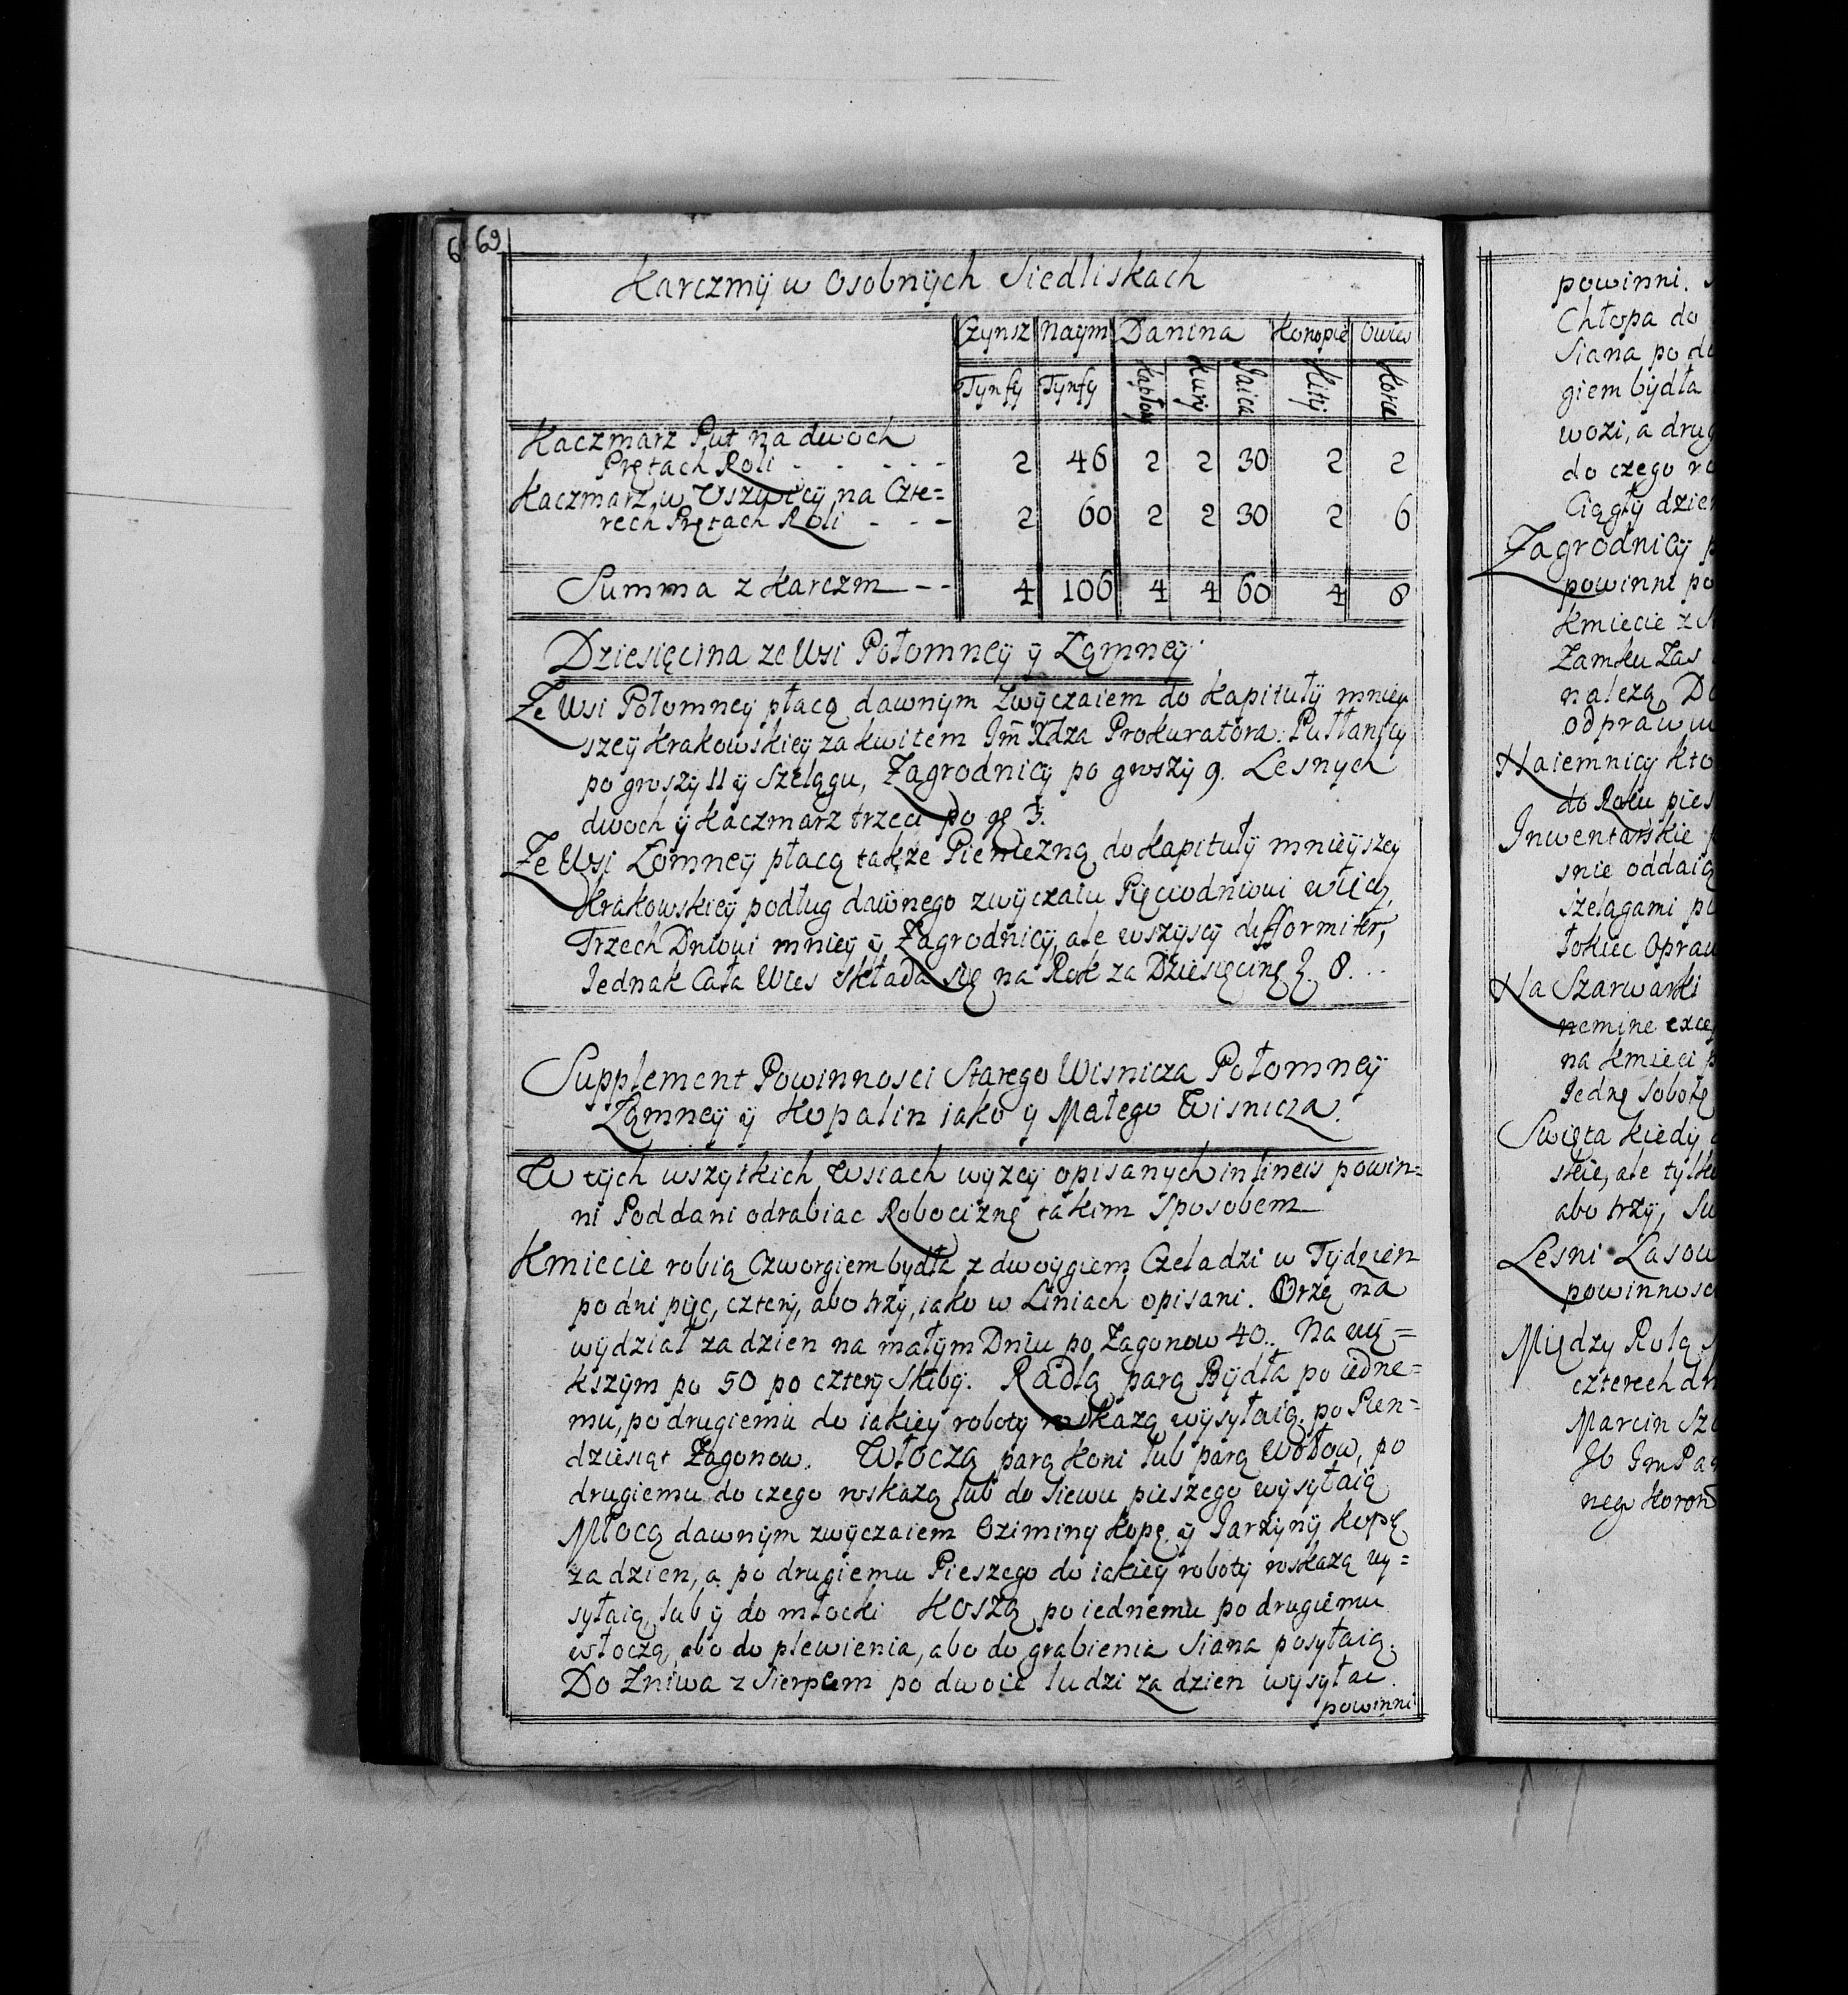 6 69
Karczmÿ w Osobnÿch Siedliskach
Czynsz Naym Danina Konopie Owies
Tynfy Tynfy Kapłony Kury Jaica Kity Korce
Kaczmarz Put na dwoch
Prętach Roli - - - - - 2 46 2 2 30 2 2
Kaczmarz w Uszwicy na Czte=
rech Prętach Roli - - - 2 60 2 2 30 2 6
Summa z Karczm - - 4 106 4 4 60 4 8
Dziesięcina ze Wsi Połomneÿ ÿ Łąmneÿ
Ze Wsi Połomneÿ płacą dawnym Zwÿczaiem do Kapitułÿ mniey
szeÿ Krakowskieÿ za kwitem Jm̄ Xdza Prokuratora: Pułłanscy
po groszÿ 11 ÿ Szelągu, Zagrodnicÿ po groszÿ 9. Lesnych
dwoch ÿ Kaczmarz trzeci po gr 3.
Ze Wsi Łomneÿ płacą także Pieniezną do Kapitułÿ mnieÿszeÿ
Krakowskieÿ podług dawnego zwÿczaiu Pięciodniowi więcÿ,
Trzech Dniowi mnieÿ ÿ Zagrodnicÿ, ale wszyscÿ difformiter,
Jednak Cała Wies składa się na Rok za Dziesięcinę 8. . .
Supplement Powinnosci Starego Wisnicza Połomneÿ
Łąmneÿ ÿ Kopalin iako ÿ Małego Wisnicza.
W tÿch wszytkich Wsiach wyzeÿ opisanych in lineis powin=
ni Poddani odrabiac Robociznę takim Sposobem
Kmiecie robią Czworgiem bydła z dwoÿgiem Czeladzi w Tÿdzien
po dni pięc, czterÿ, abo trzÿ, iako w Liniach opisani. Orzą na
wÿdział za dzien na małÿm Dniu po Zagonow 40.. Na wię=
kszÿm po 50 po czterÿ Skibÿ. Radlą parą Bÿdła po iedne=
mu, po drugiemu do iakieÿ robotÿ roskazą wÿsyłaią. po Pien=
dziesiąt Zagonow. Włoczą parą Koni lub parą Wołow, po
drugiemu do czego roskazą lub do Siewu pieszego wysyłaią
Młocą dawnÿm zwÿczaiem Oziminy Kopę ÿ Jarzynÿ kopę
za dzien, a po drugiemu Pieszego do iakieÿ robotÿ roskazą wy=
syłaią, lub ÿ do młocki Koszą po iednemu po drugiemu
włoczą, abo do plewienia, abo do grabienia Siana posyłaią.
Do Zniwa z Sierpem po dwoie ludzi za dzien wysyłac
powinni
powinni.
Chłopa do
Siana po
giem bÿdła
wozi, a
do czego
Ciągłÿ
Zagrodnicÿ
powinni po
Kmiecie z
Zamku Zas
nalezą
Naiemnicÿ
do Roku
Inwentarskie
snie oddaią
szelągami
łokiec
Na Szarwarki
nemine
na Kmieci
Jednę Sobotę
Swięta kiedÿ
skie, ale
abo trzÿ,
Lesni
Międzÿ Rolą
czterech
Marcin